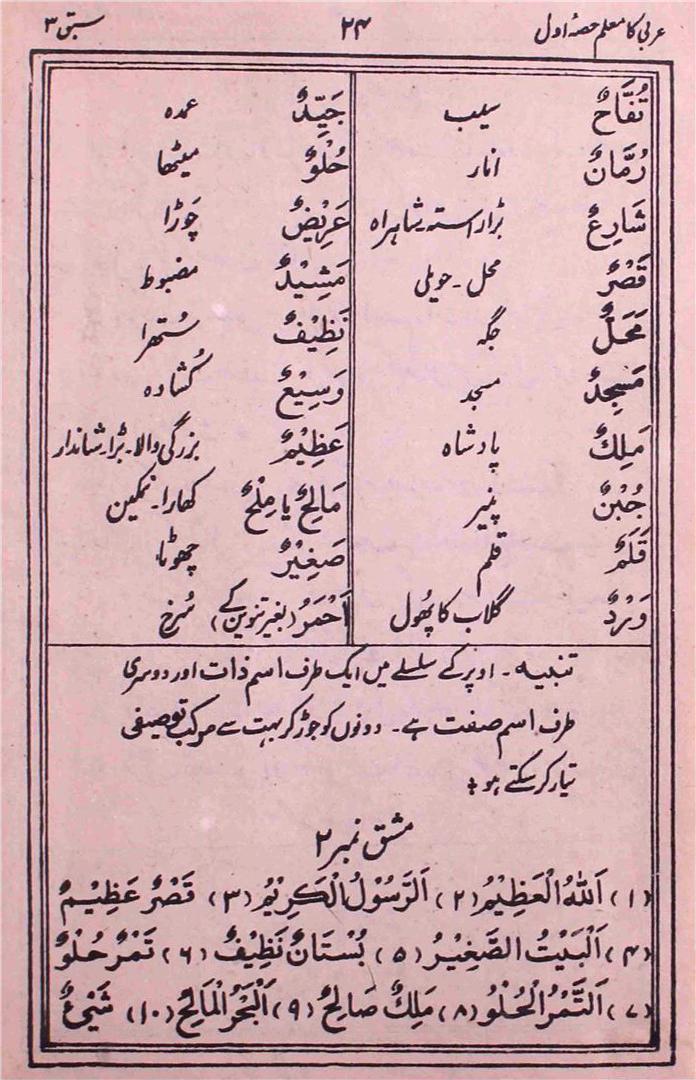 عربی کا معلم حصہ اول ۲۴ سبق ۳
تُفَّاحٌ سیب جَيِّدٌ عمدہ
رُمَّانٌ انار حُلْوٌ میٹھا
شَارِعٌ بڑا راستہ۔شاہراہ عَرِيْضٌ چَوڑا
قَصْرٌ محل۔حویلی مَشِيْدٌ مضبوط
مَحَلٌّ جگہ نَظِيْفٌ سُتھرا
مَسْجِدٌ مسجد وَسِيْعٌ کُشادہ
مَلِكٌ پادشاہ عَظِيْمٌ بزرگی والا۔بڑا۔شاندار
جُبْنٌ پنیر مَالِحٌ یا مِلْحٌ کھارا۔نمکین
قَلَمٌ قلم صَغِيْرٌ چھوٹا
وَرْدٌ گلاب کا پھُول اَحْمَرُ (بغیر تنوین کے) سُرخ
تنبیہ۔ اوپر کے سلسلے میں ایک طرف اسم ذات اور دوسری
طرف اسم صفت ہے۔ دونوں کو جوڑ کر بہت سے مرکب توصیفی
تیار کر سکتے ہو ٭
مشق نمبر ۲
(۱) اَللّٰهُ الْعَظِيْمُ (۲) اَلرَّسُوْلُ الْكَرِيْمُ (۳) قَصْرٌ عَظِيْمٌ
(۴) اَلْبَيْتُ الصَّغِيْرُ (۵) بُسْتَانٌ نَظِيْفٌ (۶) تَمْرٌ حُلْوٌ
(۷) اَلتَّمْرُ الْحُلْوُ (۸) مَلِكٌ صَالِحٌ (۹) اَلْبَحْرُ الْمَالِحُ (۱۰) شَيْئٌ